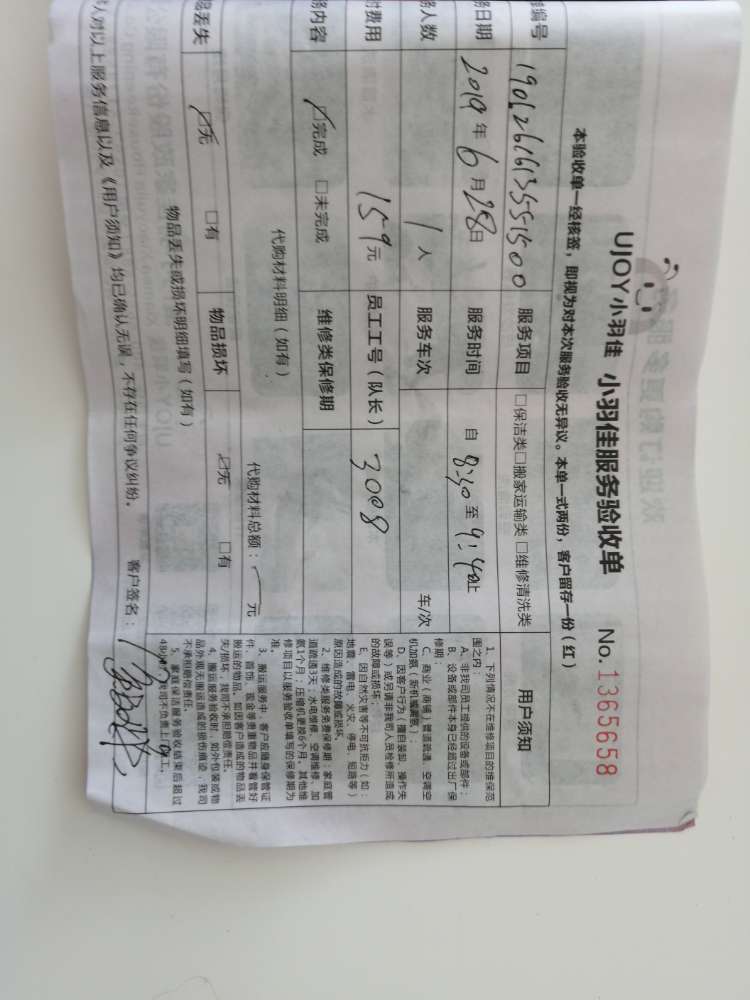 UJOY小羽佳 小羽佳服务验收单 No.1365658
本验收单一经核签，即视为对本次服务验收无异议。本单一式两份，客户留存一份（红）
编号 服务项目 □保洁类□搬家运输类 □维修清洗类
日期 2019年6月28日 服务时间 自8:30至9:40止
人数 1人 服务车次 车/次
费用 159元 员工工号（队长） 3008
内容 ☑完成 □未完成 维修类保修期
代购材料明细（如有） 代购材料总额： 元
丢失 ☑无 □有 物品损坏 ☑无 □有
物品丢失或损坏明细填写（如有）
人对以上服务信息以及《用户须知》均已确认无误，不存在任何争议纠纷。 客户签名：
用户须知
1、下列情况不在维修项目的维保范
围之内：
A、非我司员工提供的设备或部件；
B、设备或部件本身已经超过出厂保
修期；
C、商业（商铺）管道疏通、空调空
机加氨（新机或调整）；
D、因客户行为（擅自装卸、操作失
误等）或另请非我司人员检修所造成
的故障或损坏；
E、因自然灾害等不可抗拒力（如：
地震、雷电、火灾、停电、短路等）
原因造成的故障或损坏。
2、维修类服务免费保修期：家庭管
道疏通3天；水电维修、空调维修、加
氨1个月；压缩机更换6个月。其他维
修项目以服务验收单填写的保修期为
准。
3、搬运服务中，客户应随身保管证
件、首饰、现金等贵重物品并看管好
搬运的物品。如因客户造成的物品丢
失/损坏，我司不承担赔偿责任。
4、搬运服务验收时，如外包装或物
品外观无搬运造成的损伤痕迹，我司
不承担赔偿责任。
5、家庭保洁服务验收结束后超过